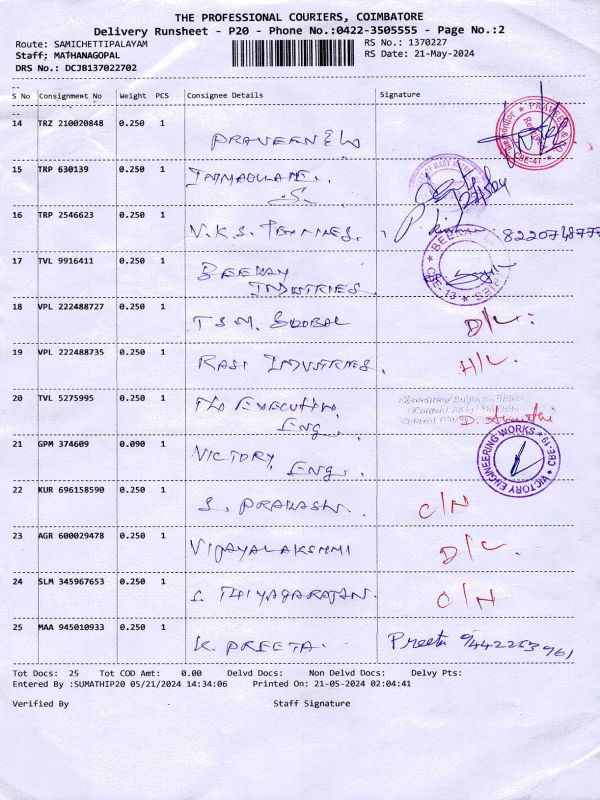 THE PROFESSIONAL COURIERS, COIMBATORE
Delivery Runsheet - P20 - Phone No.:0422-3505555 - Page No.:2
Route: SAMICHETTIPALAYAM RS No.: 1370227
Staff: MATHANAGOPAL RS Date: 21-May-2024
DRS No.: DCJB137022702
S No Consignment No Weight PCS Consignee Details Signature
14 TRZ 210020848 0.250 1 PRAVEEN & CO
15 TRP 630139 0.250 1
16 TRP 2546623 0.250 1 V.K.S. 
17 TVL 9916411 0.250 1 BEEKAY
INDUSTRIES
CBE-13
18 VPL 222488727 0.250 1 T S M. GLOBAL D/L.
19 VPL 222488735 0.250 1 RASI INDUSTRIES. H/L
20 TVL 5275995 0.250 1 THE EXECUTIVE
Eng.
21 GPM 374609 0.090 1 VICTORY
Eng. VICTORY ENGINEERING WORKS CBE-19
22 KUR 696158590 0.250 1 S. PRAKASH. C/N
23 AGR 600029478 0.250 1 VIJAYALAKSHMI D/L.
24 SLM 345967653 0.250 1 S. THIYAGARAJAN. O/N
25 MAA 945010933 0.250 1 K. PREETA. Preeta 9442263961
Tot Docs: 25 Tot COD Amt: 0.00 Delvd Docs: Non Delvd Docs: Delvy Pts:
Entered By :SUMATHIP20 05/21/2024 14:34:06 Printed On: 21-05-2024 02:04:41
Verified By Staff Signature